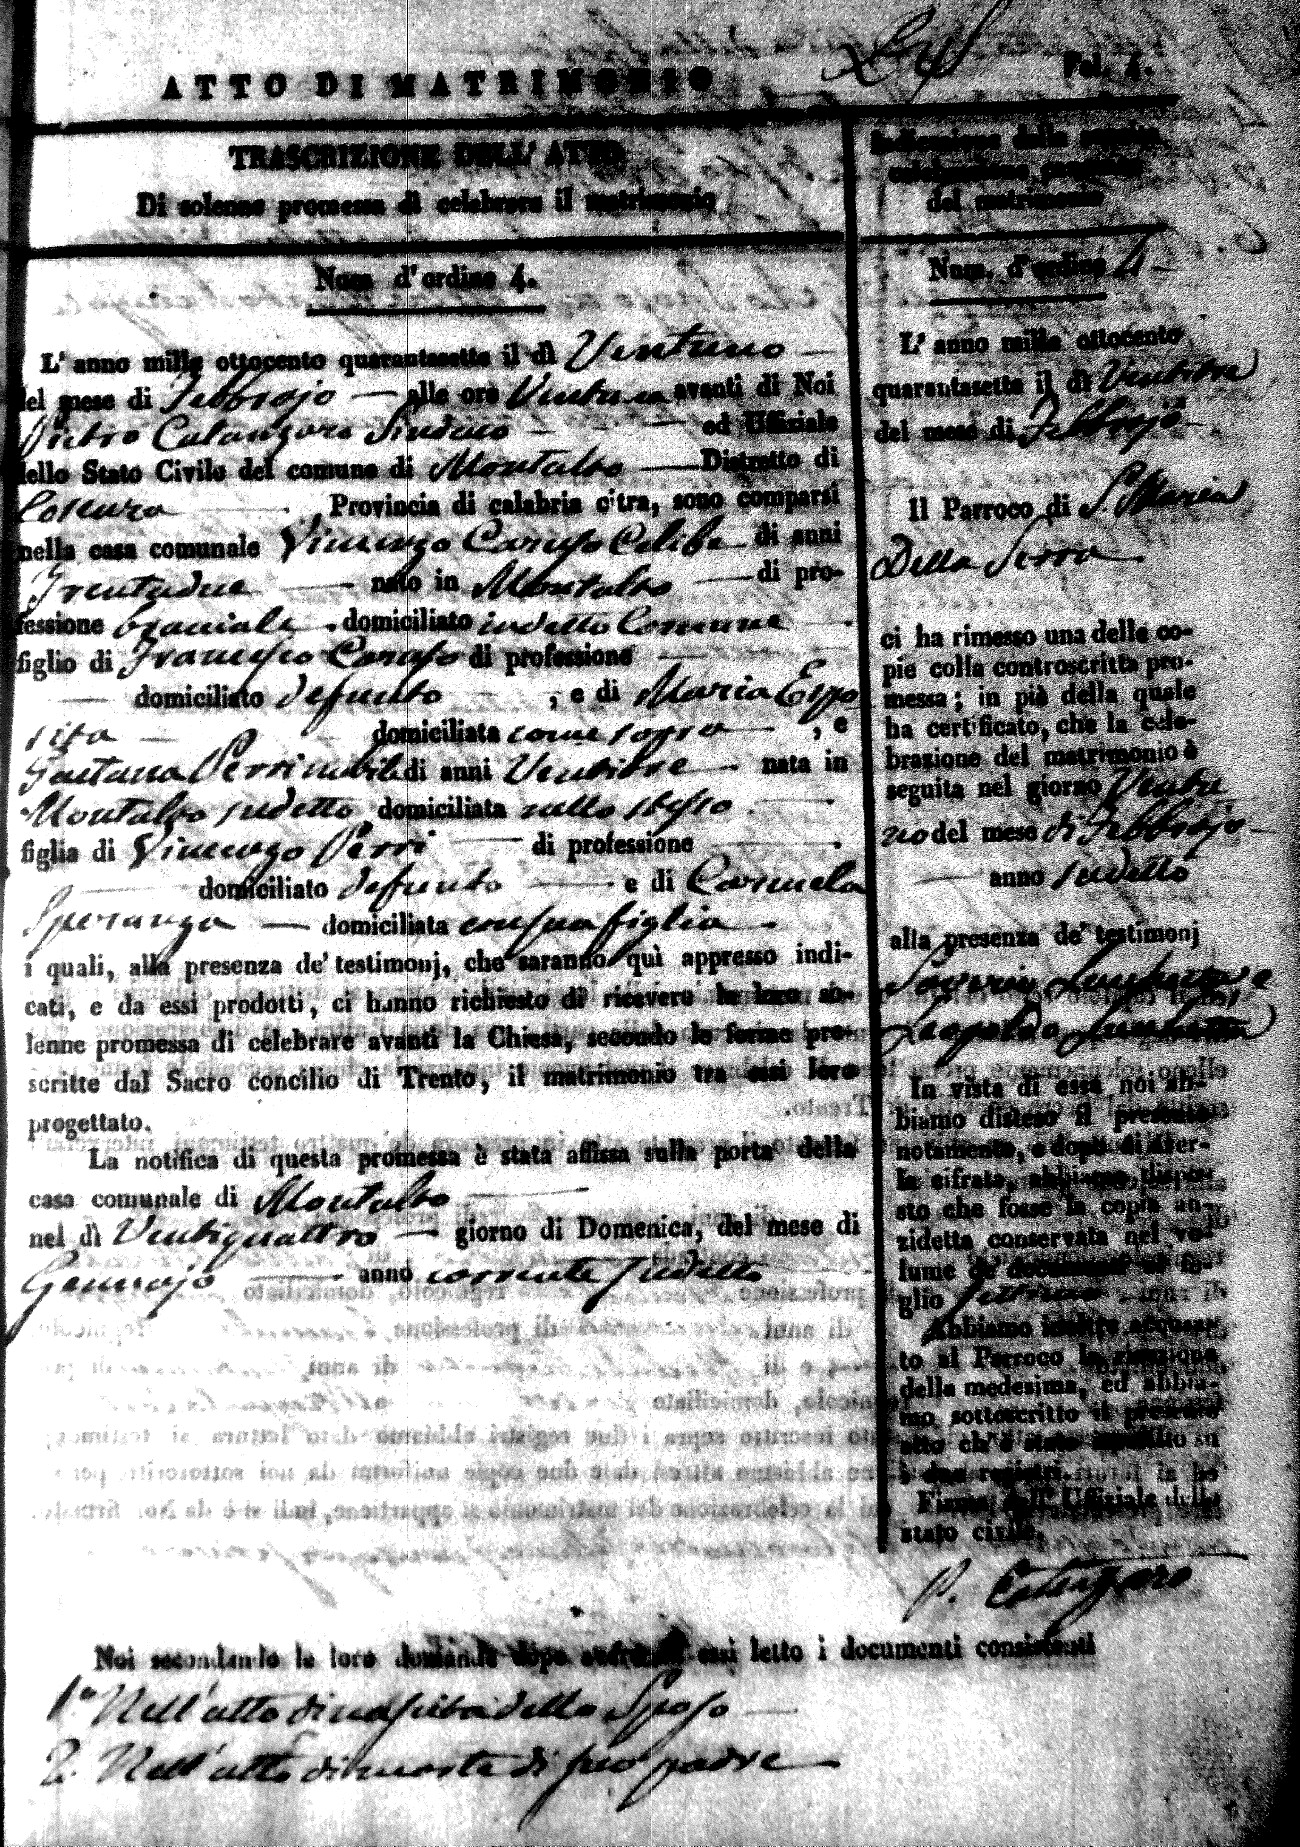 Fol. 4.
ATTO DI MATRIMONIO
TRASCRIZIONE DELL' ATTO
Di solenne promessa di celebrare il matrimonio
Num d'ordine 4.
L' anno mille ottocento quarantasette il dì Ventuno
del mese di Febbrajo alle ore avanti di Noi
Pietro Catanzaro Sindaco ed Uffiziale
dello Stato Civile del comune di Montalto Distretto di
Cosenza Provincia di calabria citra, sono comparsi
nella casa comunale Vincenzo Caruso Celibe di anni
Trentadue nato in Montalto di pro-
fessione bracciale domiciliato in detto Comune
figlio di Francesco Caruso di professione
domiciliato defunto , e di Maria Espo
sita domiciliata come sopra , e
Gaetana Perri nubile di anni Ventitre nata in
Montalto sudetto domiciliata nello stesso
figlia di Vincenzo Perri di professione
domiciliato defunto e di Carmela
Speranza domiciliata con sua figlia
i quali, alla presenza de' testimonj, che saranno quì appresso indi-
cati, e da essi prodotti, ci hanno richiesto di ricevere la loro so-
lenne promessa di celebrare avanti la Chiesa, secondo le forme pre-
scritte dal Sacro concilio di Trento, il matrimonio tra essi loro
progettato.
La notifica di questa promessa è stata affissa sulla porta della
casa comunale di Montalto
nel dì Ventiquattro giorno di Domenica, del mese di
Gennajo anno corrente sudetto
Indicazione della seguita
celebrazione
del matrimonio
Num. d'ordine 4
L' anno mille ottocento
quarantasette il dì Ventitre
del mese di Febbrajo
Il Parroco di S. Maria
Della Serra
ci ha rimesso una delle co-
pie colla controscritta pro-
messa; in piè della quale
ha certificato, che la cele-
brazione del matrimonio è
seguita nel giorno Ventu
no del mese di Febbrajo
anno sudetto
alla presenza de' testimonj
Saverio e
Leopoldo
In vista di essa noi ab-
biamo disteso il presente
notamento, e dopo di aver-
la cifrata, abbiamo dispo-
sto che fosse la copia an-
zidetta conservata nel vo-
lume de' documenti al fo-
glio
Abbiamo inoltre accusa-
to al Parroco la ricezione
della medesima, ed abbia-
mo sottoscritto il presente
atto ch' è stato inscritto su
i due registri.
Firma dell' Uffiziale dello
stato civile.
P. Catanzaro
Noi secondando le loro domande dopo aver ad essi letto i documenti consistenti
1º Nell'atto di nascita dello Sposo
2. Nell'atto di morte di suo padre